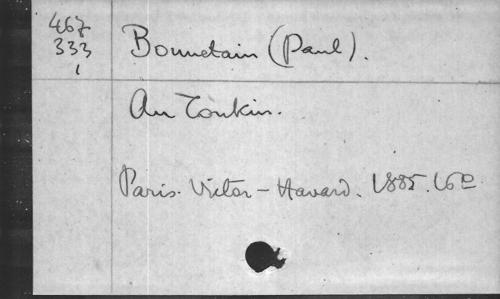 467
333
1
Bonnetain (Paul).
Au Tonkin.
Paris. Victor-Havard. 1885. 16º